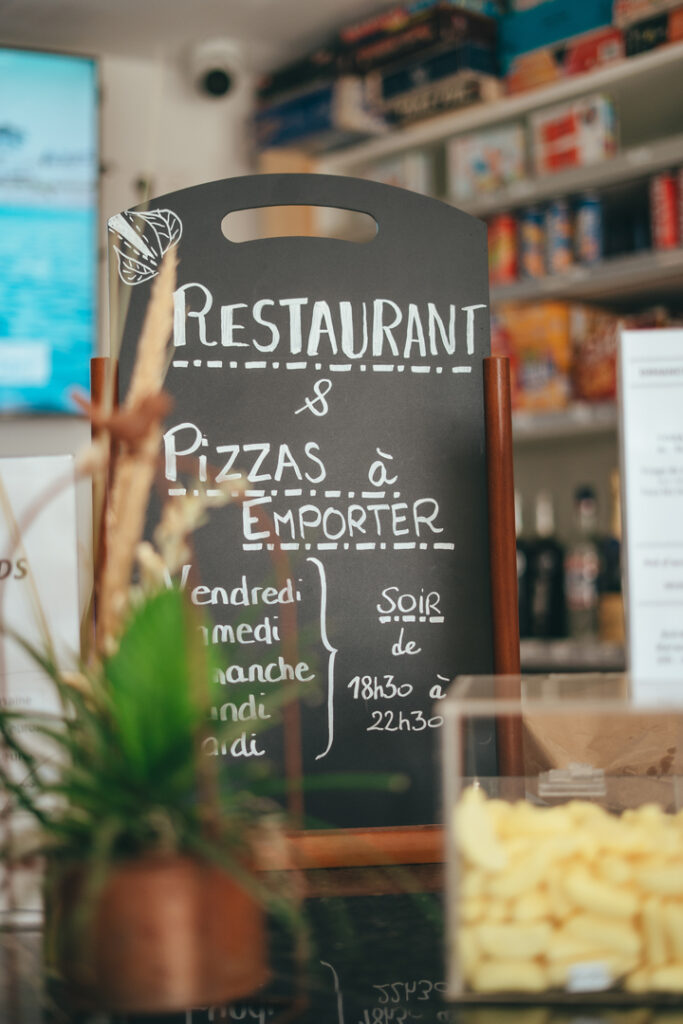 RESTAURANT
&
PIZZAS à
EMPORTER
Vendredi
amedi
manche
undi
ardi
SOIR
de
18h30 à
22h30